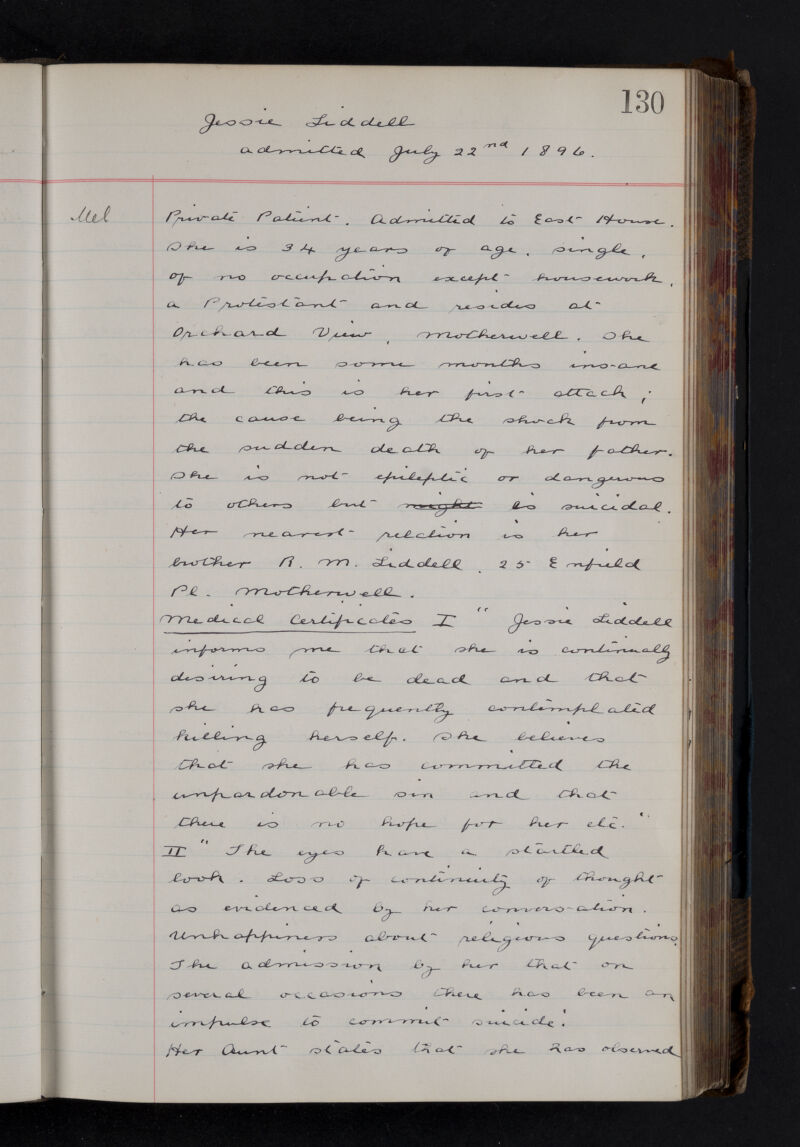 130
Jessie Liddell
admitted July 22nd 1896.
Mel
Private Patient. Admitted to East House.
She is 34 years of age, single,
of no occupation except housework,
a Protestant and resides at
Orchard View, Motherwell. She
has been some months insane
and this is her first attack;
the cause being the shock from
the sudden death of her father.
She is not epileptic or dangerous
to others but might is suicidal.
Her nearest relation is her
brother R. M. Liddell. 25 Enfield
Pl. Motherwell.
Medical Certificates I "Jessie Liddell
informs me that she is continually
desiring to be dead and that
she has frequently contemplated
killing herself. She believes
that she has committed the
unpardonable sin and that
there is no hope for her etc."
II "The eyes have a startled
look. Loss of continuity of thought
as evidenced by her conversation.
Unhappiness about religious questions.
The admission by her that on
several occasions there has been an
impulse to commit suicide".
Her Aunt states that she has observed